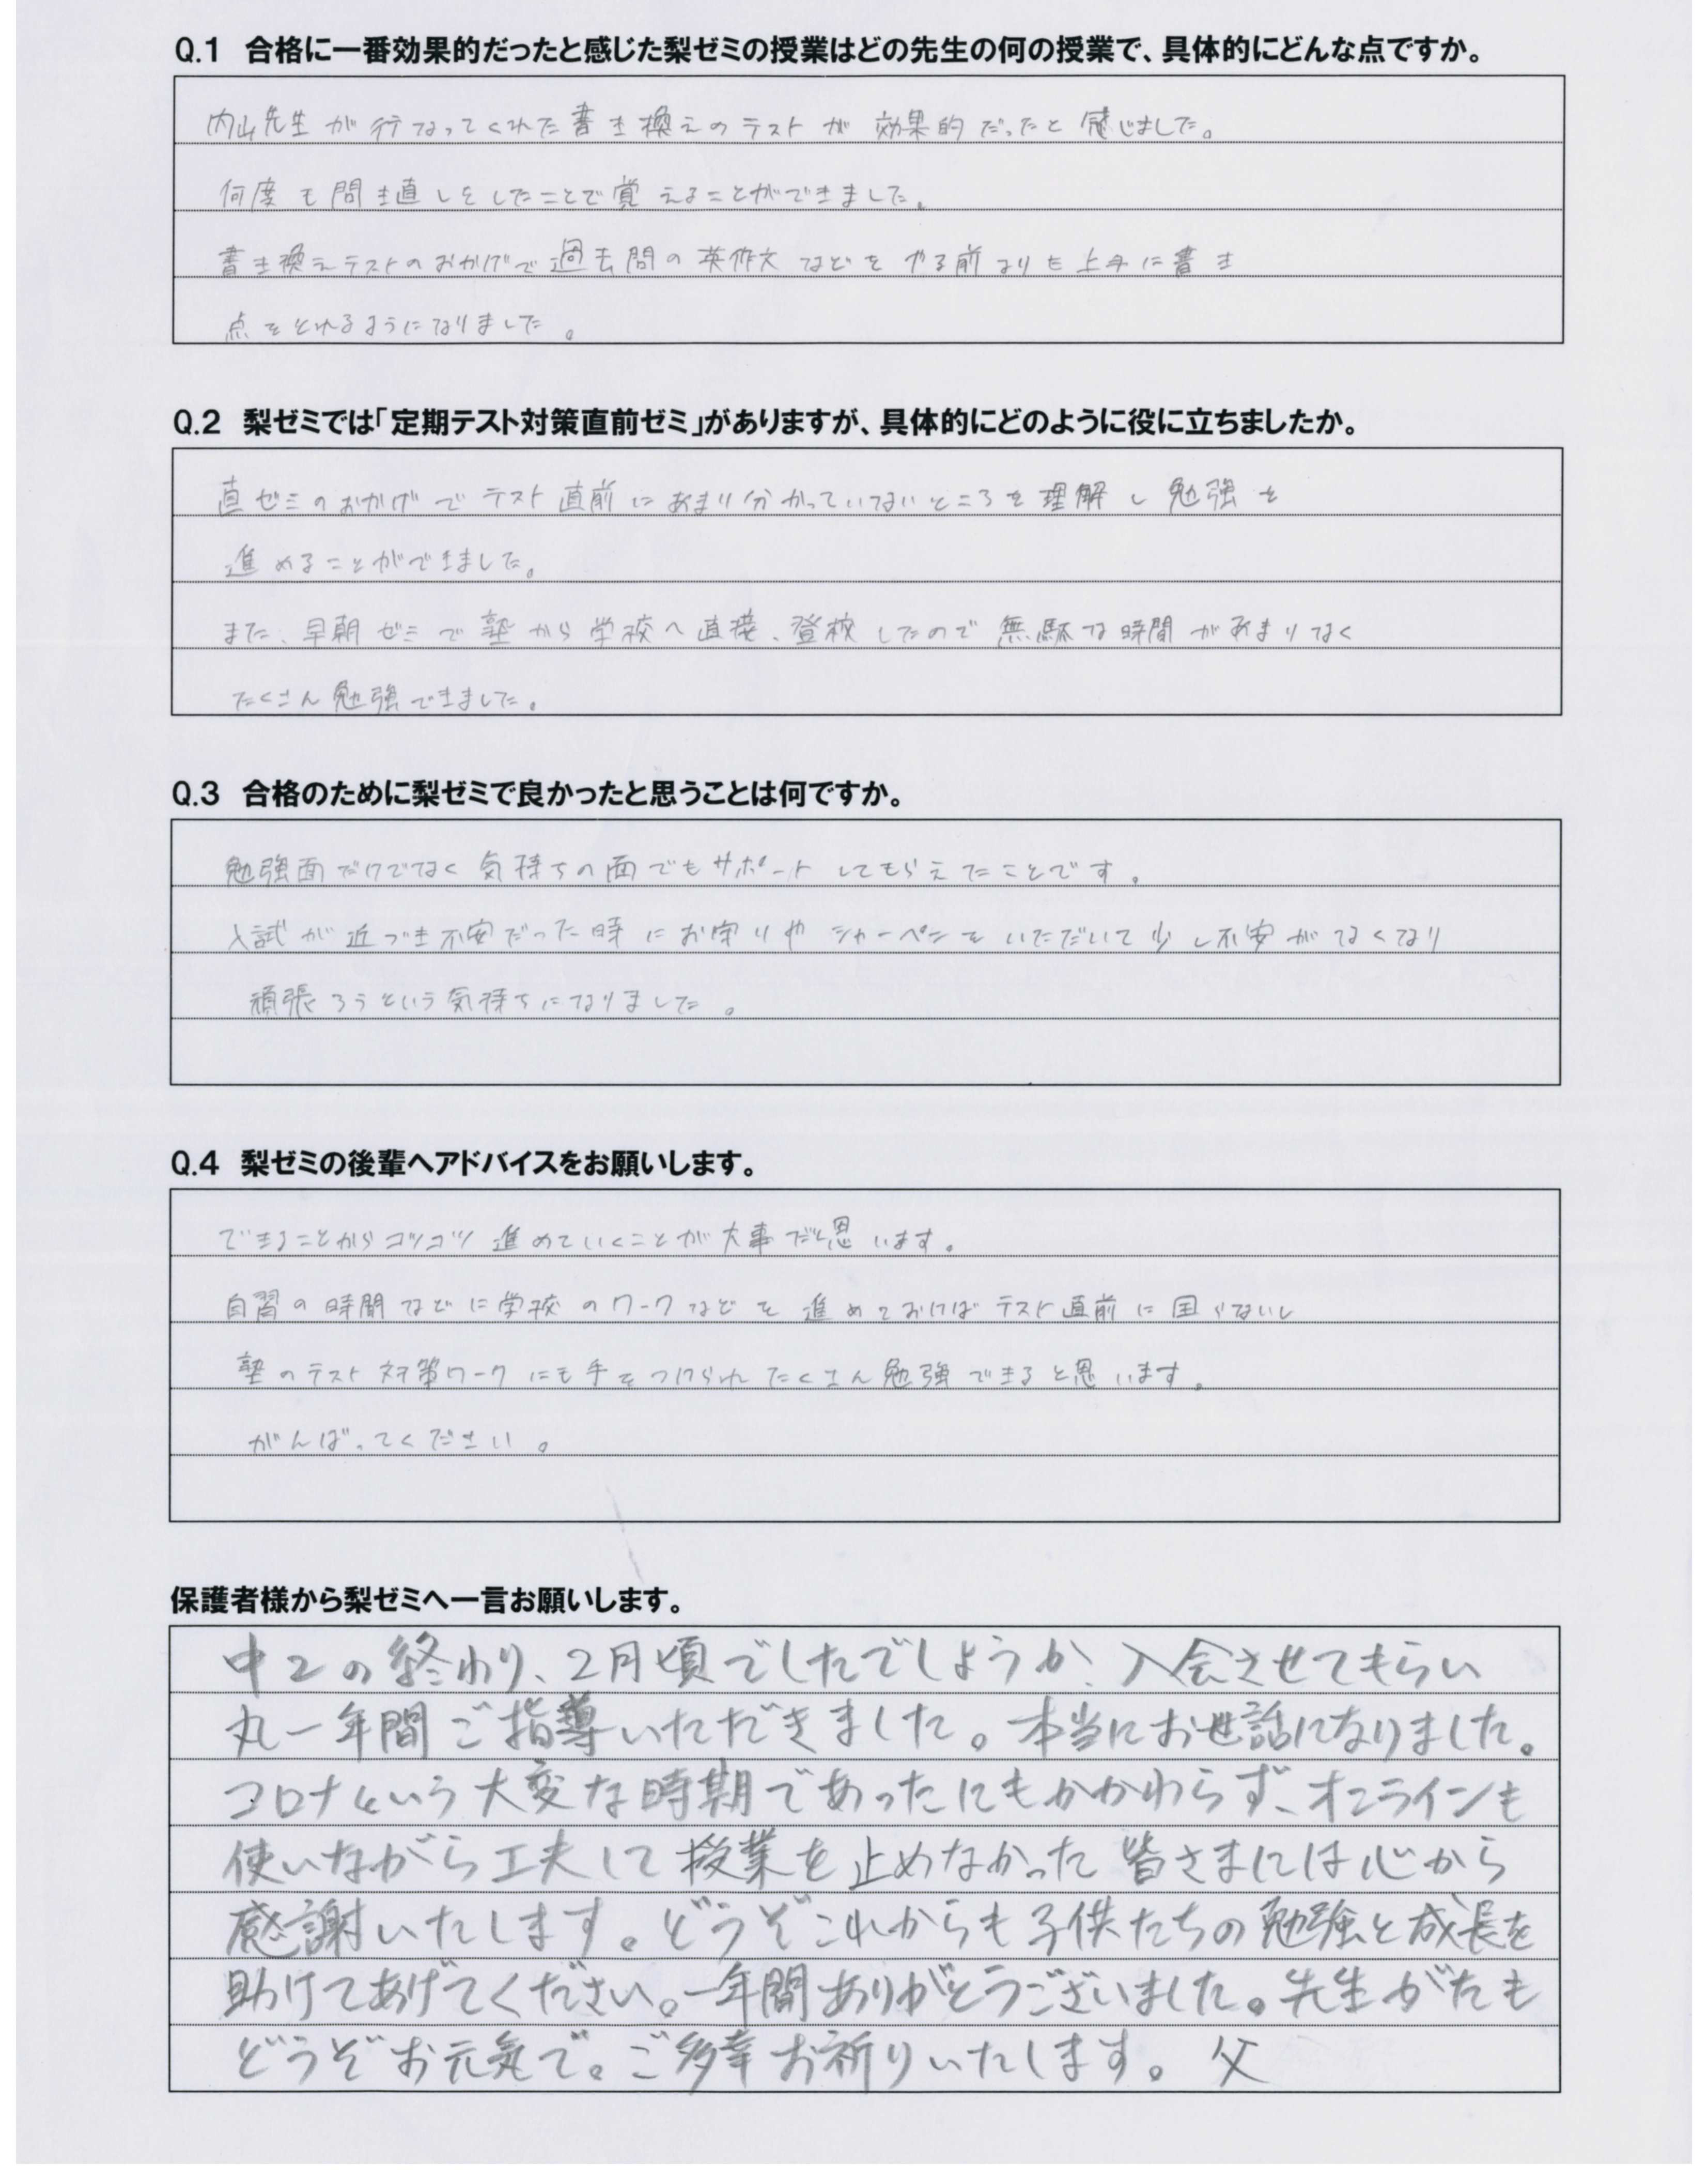 Q.1 合格に一番効果的だったと感じた梨ゼミの授業はどの先生の何の授業で、具体的にどんな点ですか。
内山先生が行なってくれた書き換えのテストが効果的だったと感じました。
何度も問き直しをしたことで覚えることができました。
書き換えテストのおかげで過去問の英作文などをやる前よりも上手に書き
点をとれるようになりました。
Q.2 梨ゼミでは「定期テスト対策直前ゼミ」がありますが、具体的にどのように役に立ちましたか。
直ゼミのおかげでテスト直前にあまり分かっていないところを理解し勉強を
進めることができました。
また、早朝ゼミで塾から学校へ直接、登校したので無駄な時間があまりなく
たくさん勉強できました。
Q.3 合格のために梨ゼミで良かったと思うことは何ですか。
勉強面だけでなく気持ちの面でもサポートしてもらえたことです。
入試が近づき不安だった時にお守りやシャーペンをいただいて少し不安がなくなり
頑張ろうという気持ちになりました。
Q.4 梨ゼミの後輩へアドバイスをお願いします。
できることからコツコツ進めていくことが大事だと思います。
自習の時間などに学校のワークなどを進めておけばテスト直前に困らないし
塾のテスト対策ワークにも手をつけられたくさん勉強できると思います。
がんばってください。
保護者様から梨ゼミへ一言お願いします。
中2の終わり、2月頃でしたでしょうか、入会させてもらい
丸一年間ご指導いただきました。本当にお世話になりました。
コロナという大変な時期であったにもかかわらず、オンラインも
使いながら工夫して授業を止めなかった皆さまには心から
感謝いたします。どうぞこれからも子供たちの勉強と成長を
助けてあげてください。一年間ありがとうございました。先生がたも
どうぞお元気で。ご多幸お祈りいたします。 父